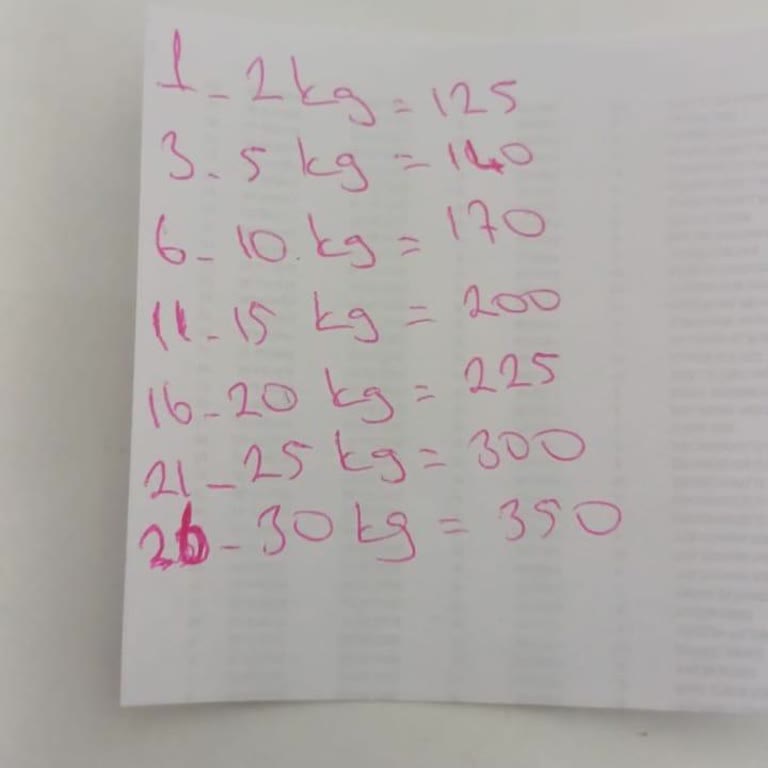 1 - 2 kg = 125
3 - 5 kg = 140
6 - 10 kg = 170
11 - 15 kg = 200
16 - 20 kg = 225
21 - 25 kg = 300
26 - 30 kg = 350